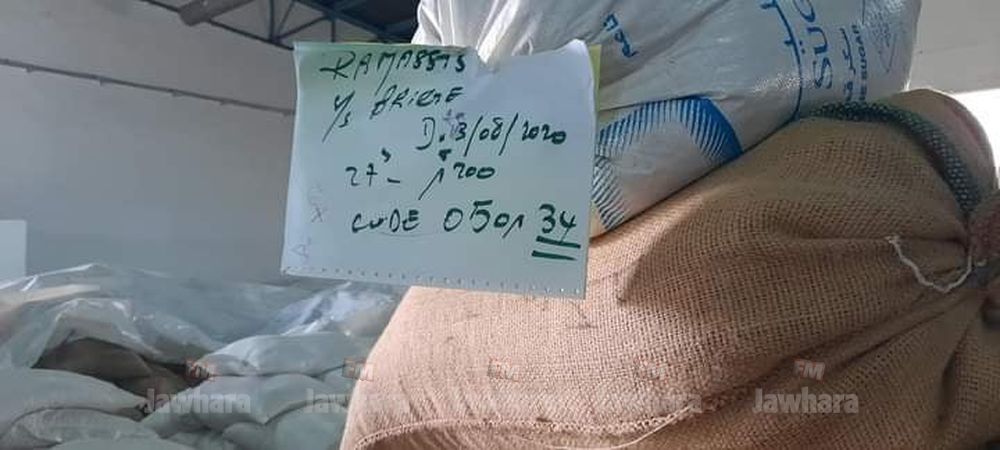 RAMASSIS
D. 13/08/2020
27 - 1200
CODE 0501 34
SUC
DE SUGAR
FM FM FM FM
Jawhara Jawhara Jawhara Jawhara